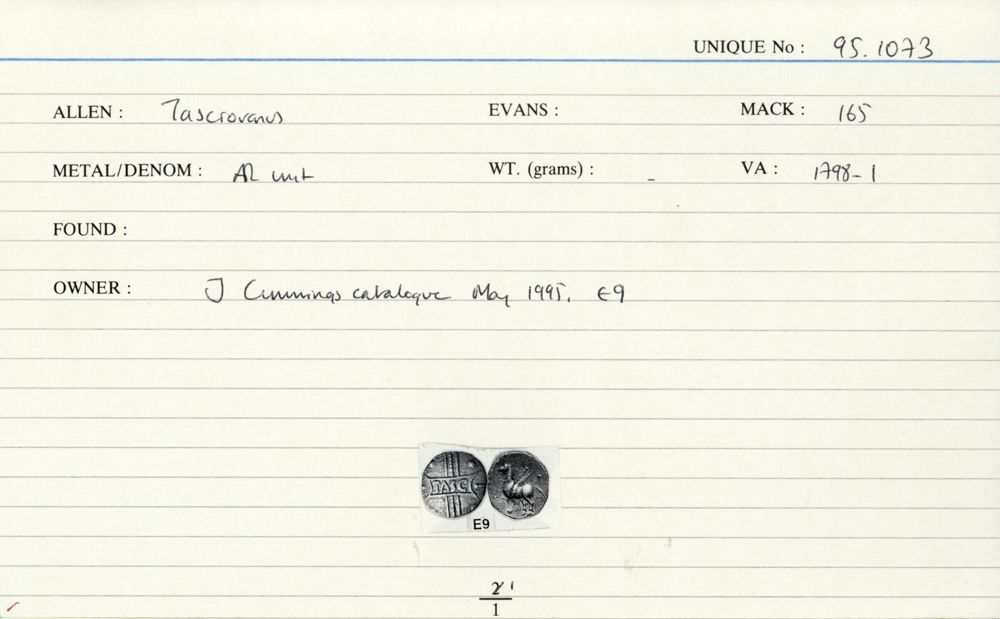 UNIQUE No : 95.1073
ALLEN : Tasciovanus EVANS : MACK : 165
METAL/DENOM : AR unit WT. (grams) : - VA : 1798-1
FOUND :
OWNER : J Cummings catalogue May 1995. E9
TASC
E9
1